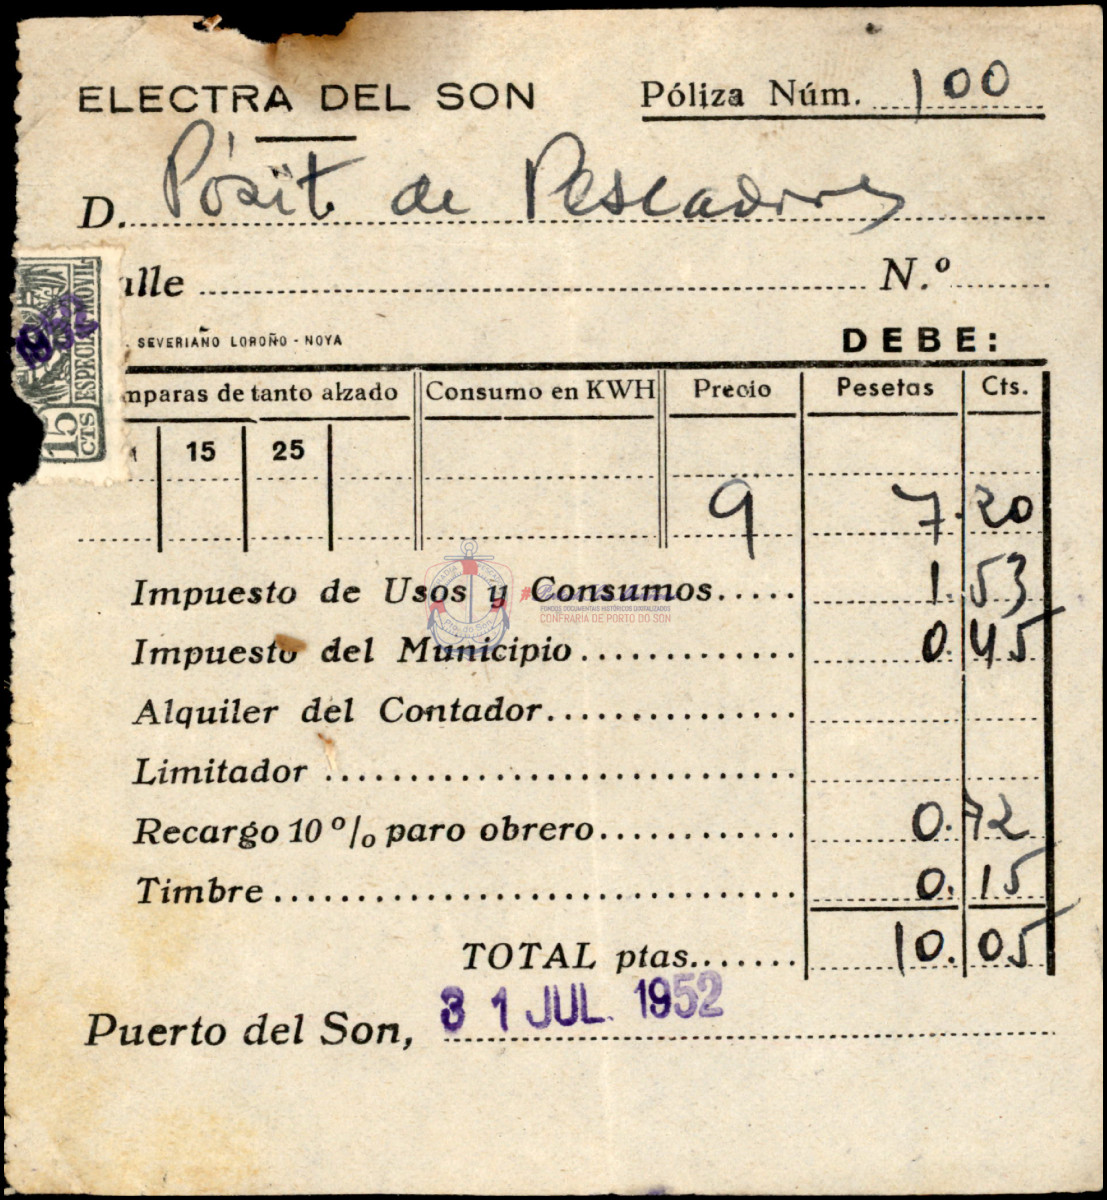 ELECTRA DEL SON
Póliza Núm. 100
D. Pósito de Pescadores
alle N.º
SEVERIANO LOROÑO - NOYA
DEBE:
1952
ESPECIAL MOVIL
15 CTS
mparas de tanto alzado Consumo en KWH Precio Pesetas Cts.
15 25
9 7.20
Impuesto de Usos y Consumos..... 1.53
FONDOS DOCUMENTAIS HISTÓRICOS DIXITALIZADOS
CONFRARÍA DE PORTO DO SON
Impuesto del Municipio............. 0.45
Alquiler del Contador...............
Limitador ............................
Recargo 10 % paro obrero............ 0.72
Timbre ............................... 0.15
TOTAL ptas....... 10.05
Puerto del Son, 31 JUL. 1952